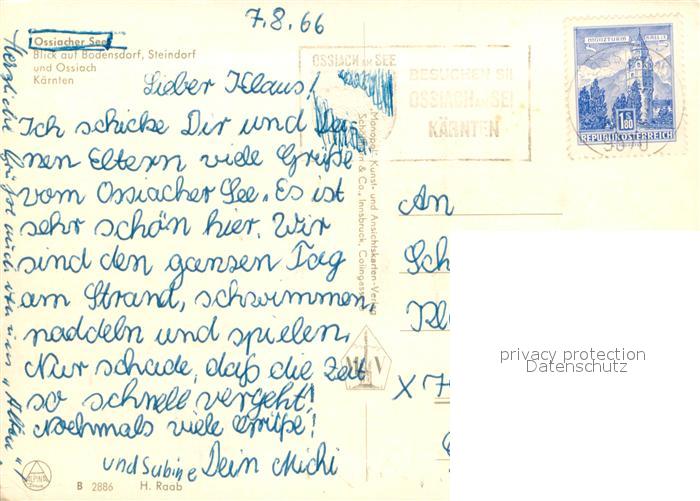 7.8.66
Ossiacher See
Blick auf Bodensdorf, Steindorf
und Ossiach
Kärnten
Lieber Klaus!
Ich schicke Dir und Dei-
nen Eltern viele Grüße
vom Ossiacher See. Es ist
sehr schön hier. Wir
sind den ganzen Tag
am Strand, schwimmen,
paddeln und spielen.
Nur schade, daß die Zeit
so schnell vergeht!
Nochmals viele Grüße!
und Sabine Dein Michi
Herzliche Grüße auch von uns "Alten"
ALPINA
B 2886 H. Raab
Monopol Kunst- und Ansichtskarten-Verlag
& Co., Innsbruck, Colingasse
OSSIACH AM SEE
BESUCHEN SIE
OSSIACH AM SEE
KÄRNTEN
MÜNZTURM HALL I. T.
1.80
REPUBLIK ÖSTERREICH
An
Sch
Kl
X 7
privacy protection
Datenschutz